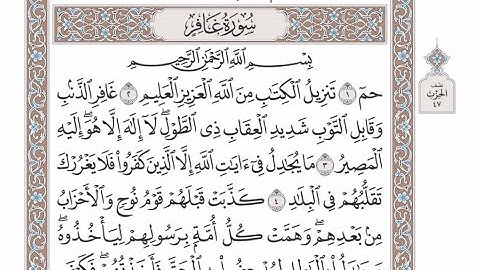 سُورَةُ غَافِرٍ
بِسْمِ اللَّهِ الرَّحْمَٰنِ الرَّحِيمِ
حمٓ ١ تَنزِيلُ الْكِتَٰبِ مِنَ اللَّهِ الْعَزِيزِ الْعَلِيمِ ٢ غَافِرِ الذَّنۢبِ
وَقَابِلِ التَّوْبِ شَدِيدِ الْعِقَابِ ذِي الطَّوْلِ ۖ لَآ إِلَٰهَ إِلَّا هُوَ ۖ إِلَيْهِ
الْمَصِيرُ ٣ مَا يُجَٰدِلُ فِيٓ ءَايَٰتِ اللَّهِ إِلَّا الَّذِينَ كَفَرُوا فَلَا يَغْرُرْكَ
تَقَلُّبُهُمْ فِي الْبِلَٰدِ ٤ كَذَّبَتْ قَبْلَهُمْ قَوْمُ نُوحٍ وَالْأَحْزَابُ
مِنۢ بَعْدِهِمْ ۖ وَهَمَّتْ كُلُّ أُمَّةٍۭ بِرَسُولِهِمْ لِيَأْخُذُوهُ ۖ
الْحِزْب
٤٧